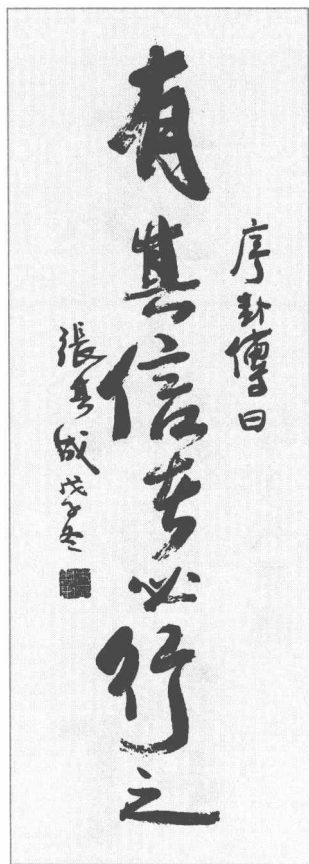 序卦傳曰
有其信者必行之
張春成戊子冬